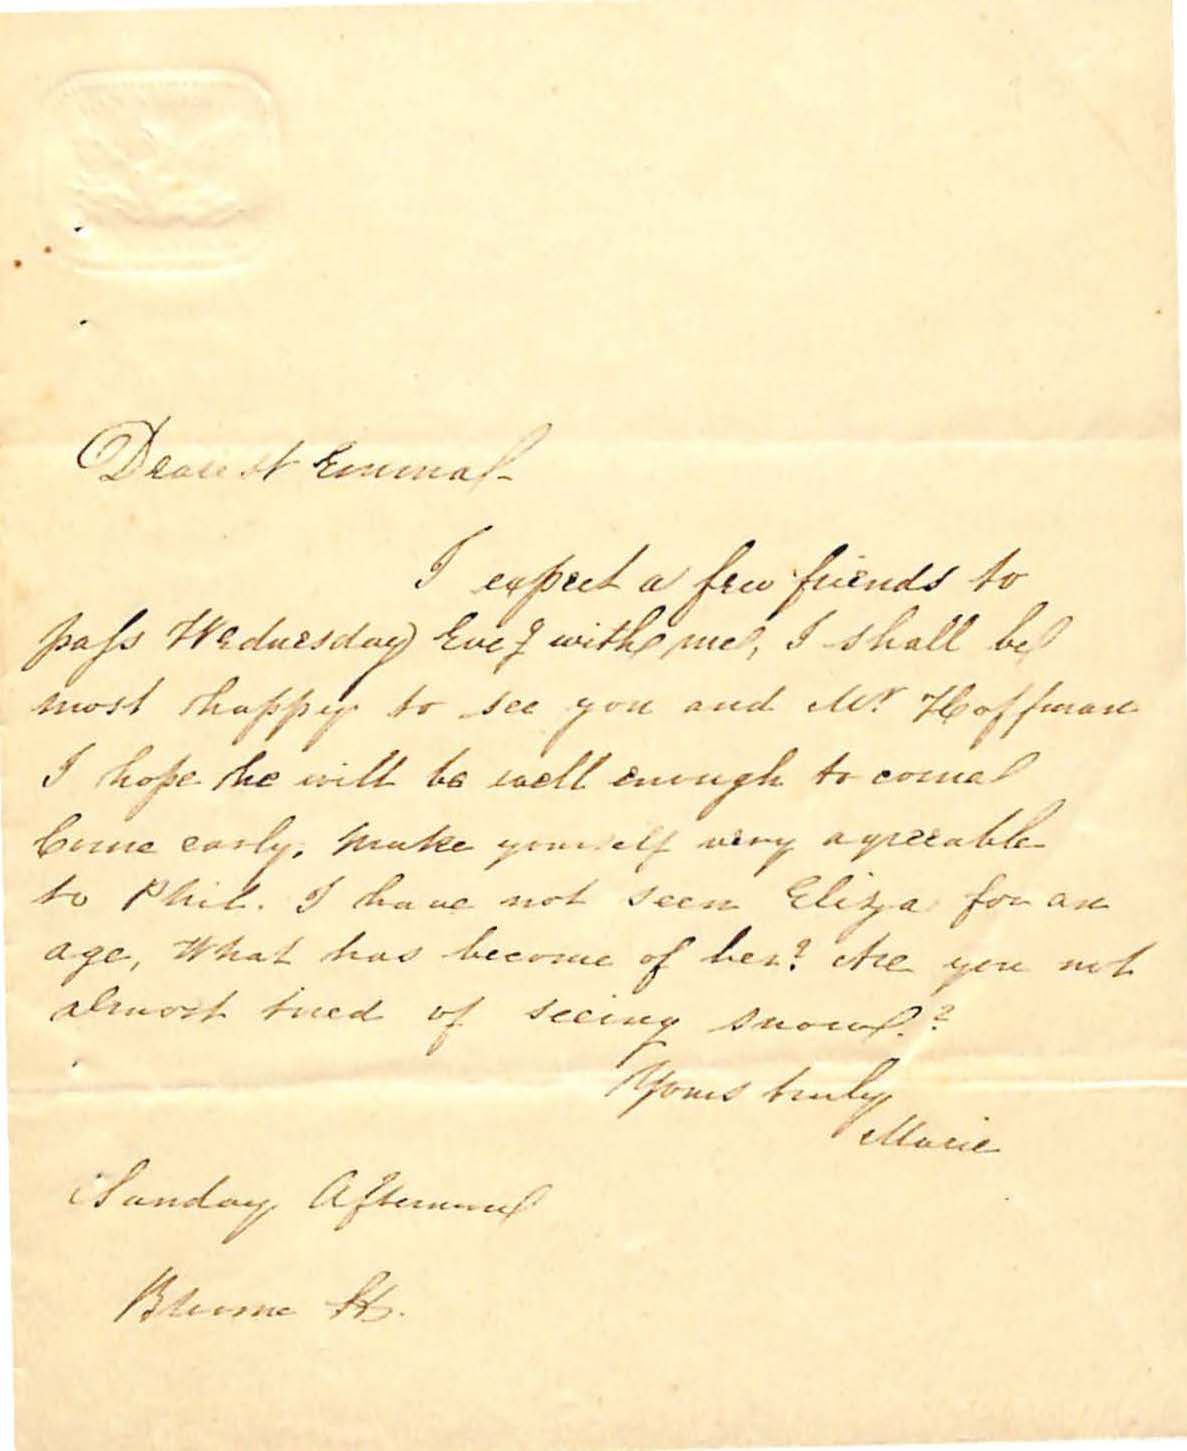 Dearest Emma
I expect a few friends to
pass Wednesday Eveg with me, I shall be
most happy to see you and Mr. Hoffman
I hope he will be well enough to come
Come early. Make yourself very agreeable
to Phil. I have not seen Eliza for an
age, What has become of her? Are you not
almost tired of seeing snow.?
Yours truly
Marie
Sunday Afternoon
Broome St.